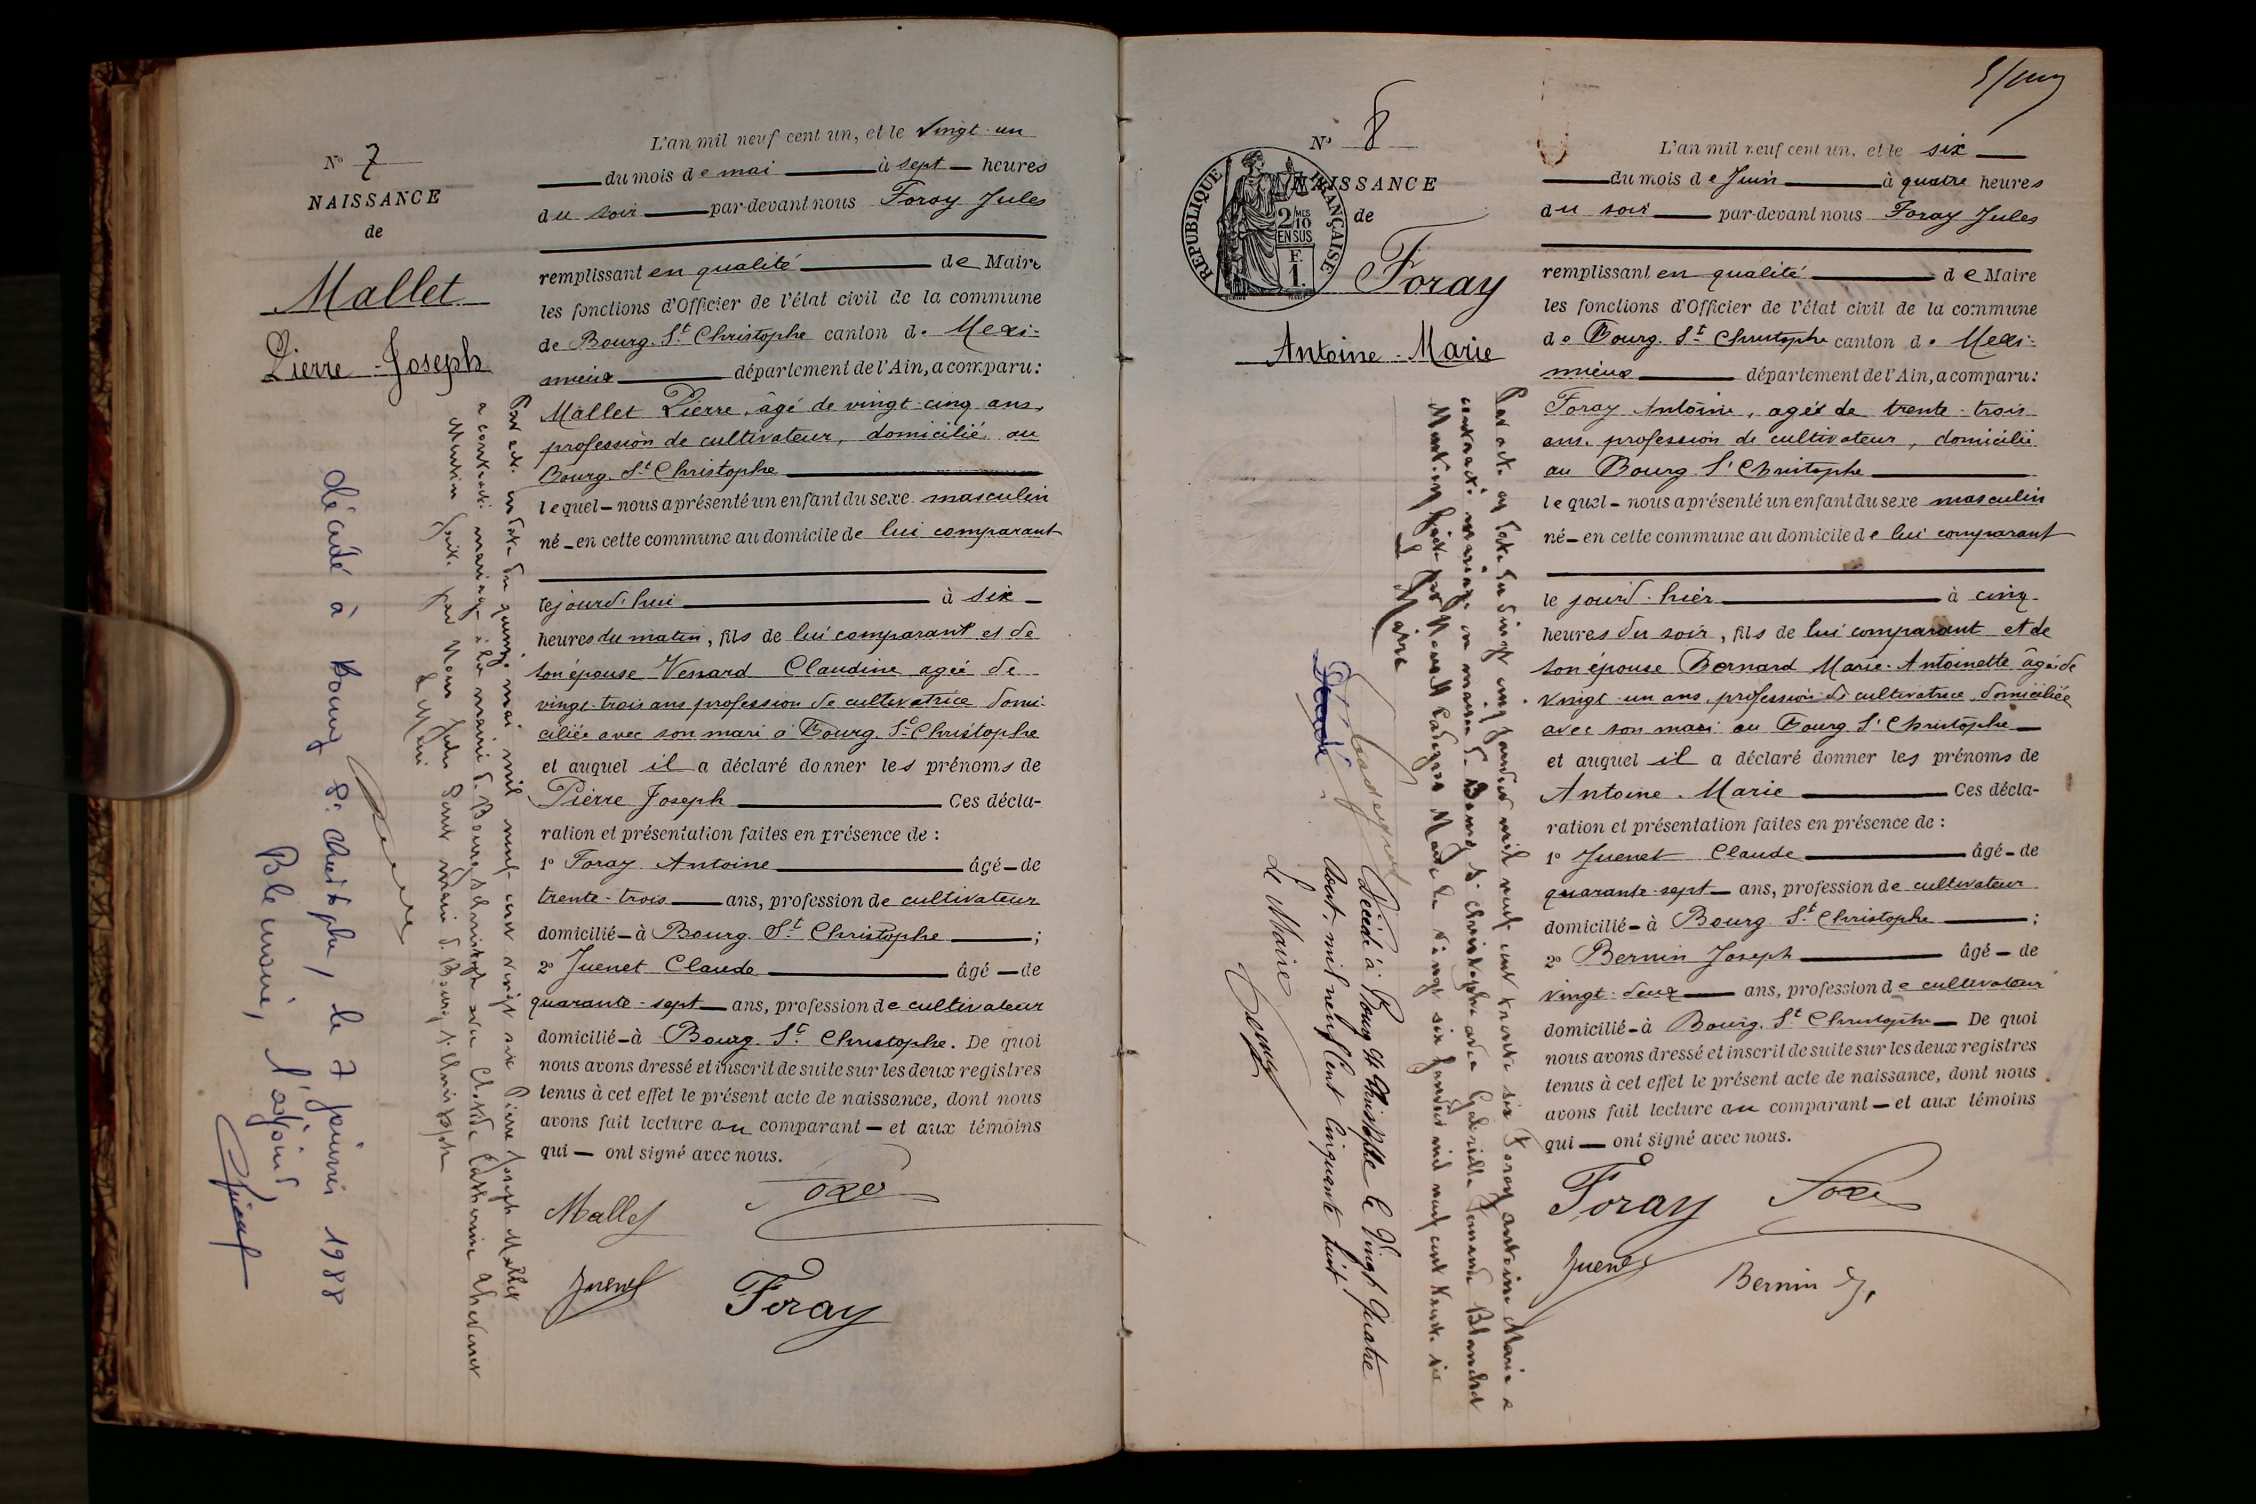 N° 7
NAISSANCE
de
Mallet
Pierre-Joseph
L'an mil neuf cent un, et le vingt-un
du mois de mai à sept heures
du soir par-devant nous Foray Jules
remplissant en qualité de Maire
les fonctions d'Officier de l'état civil de la commune
de Bourg-St Christophe canton de Mexi-
mieux département de l'Ain, a comparu:
Mallet Pierre, âgé de vingt-cinq ans,
profession de cultivateur, domicilié au
Bourg-St Christophe
lequel nous a présenté un enfant du sexe masculin
né en cette commune au domicile de lui comparant
lejourd'hui à six
heures du matin, fils de lui comparant et de
son épouse Venard Claudine agée de
vingt-trois ans profession de cultivatrice domi-
ciliée avec son mari à Bourg-St Christophe
et auquel il a déclaré donner les prénoms de
Pierre Joseph Ces décla-
ration et présentation faites en présence de :
1° Foray Antoine âgé de
trente-trois ans, profession de cultivateur
domicilié à Bourg-St Christophe ;
2° Juenet Claude âgé de
quarante-sept ans, profession de cultivateur
domicilié à Bourg-St Christophe. De quoi
nous avons dressé et inscrit de suite sur les deux registres
tenus à cet effet le présent acte de naissance, dont nous
avons fait lecture au comparant et aux témoins
qui ont signé avec nous.
Mallet
Juenet Foray
Par acte en date du quinze mai mil neuf cent vingt six Pierre Joseph Mallet
a contracté mariage à la mairie de Bourg St Christophe avec Catherine
Mention faite par Nous Jules maire de Bourg St Christophe
Le Maire
décédé à Bourg St Christophe, le 7 janvier 1988
l'adjoint
N° 8
NAISSANCE
de
Foray
Antoine-Marie
RÉPUBLIQUE FRANÇAISE
2/10 MES
EN SUS
F.
1.
L'an mil neuf cent un, et le six
du mois de Juin à quatre heures
du soir par-devant nous Foray Jules
remplissant en qualité de Maire
les fonctions d'Officier de l'état civil de la commune
de Bourg-St Christophe canton de Mexi-
mieux département de l'Ain, a comparu:
Foray Antoine, agés de trente-trois
ans, profession de cultivateur, domicilié
au Bourg St Christophe
lequel nous a présenté un enfant du sexe masculin
né en cette commune au domicile de lui comparant
le jourd'hier à cinq
heures du soir, fils de lui comparant et de
son épouse Bernard Marie-Antoinette âgée de
vingt-un ans, profession de cultivatrice, domiciliée
avec son mari au Bourg St Christophe
et auquel il a déclaré donner les prénoms de
Antoine-Marie Ces décla-
ration et présentation faites en présence de :
1° Juenet Claude âgé de
quarante-sept ans, profession de cultivateur
domicilié à Bourg-St Christophe ;
2° Bernin Joseph âgé de
vingt-deux ans, profession de cultivateur
domicilié à Bourg-St Christophe De quoi
nous avons dressé et inscrit de suite sur les deux registres
tenus à cet effet le présent acte de naissance, dont nous
avons fait lecture au comparant et aux témoins
qui ont signé avec nous.
Foray
Juenet Bernin J.
Par acte en date du vingt cinq janvier mil neuf cent trente six Foray Antoine Marie a
contracté mariage en mairie de Bourg St Christophe avec Gabrielle Fernande Blanchet
Mention faite par Nous Maire le vingt six janvier mil neuf cent trente six
Le Maire
Décédé
Décédé à Bourg St Christophe le Vingt Quatre
Aout mil neuf Cent Cinquante huit
Le Maire